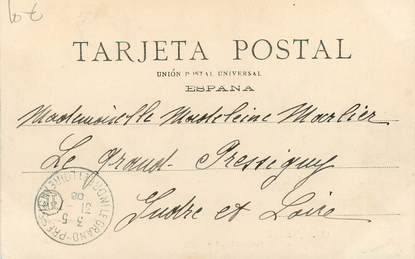 TARJETA POSTAL
UNIÓN POSTAL UNIVERSAL
ESPAÑA
Mademoiselle Madeleine Marlier
Le Grand-Pressigny
Indre et Loire
LE GRAND-PRESSIGNY
3-5
08